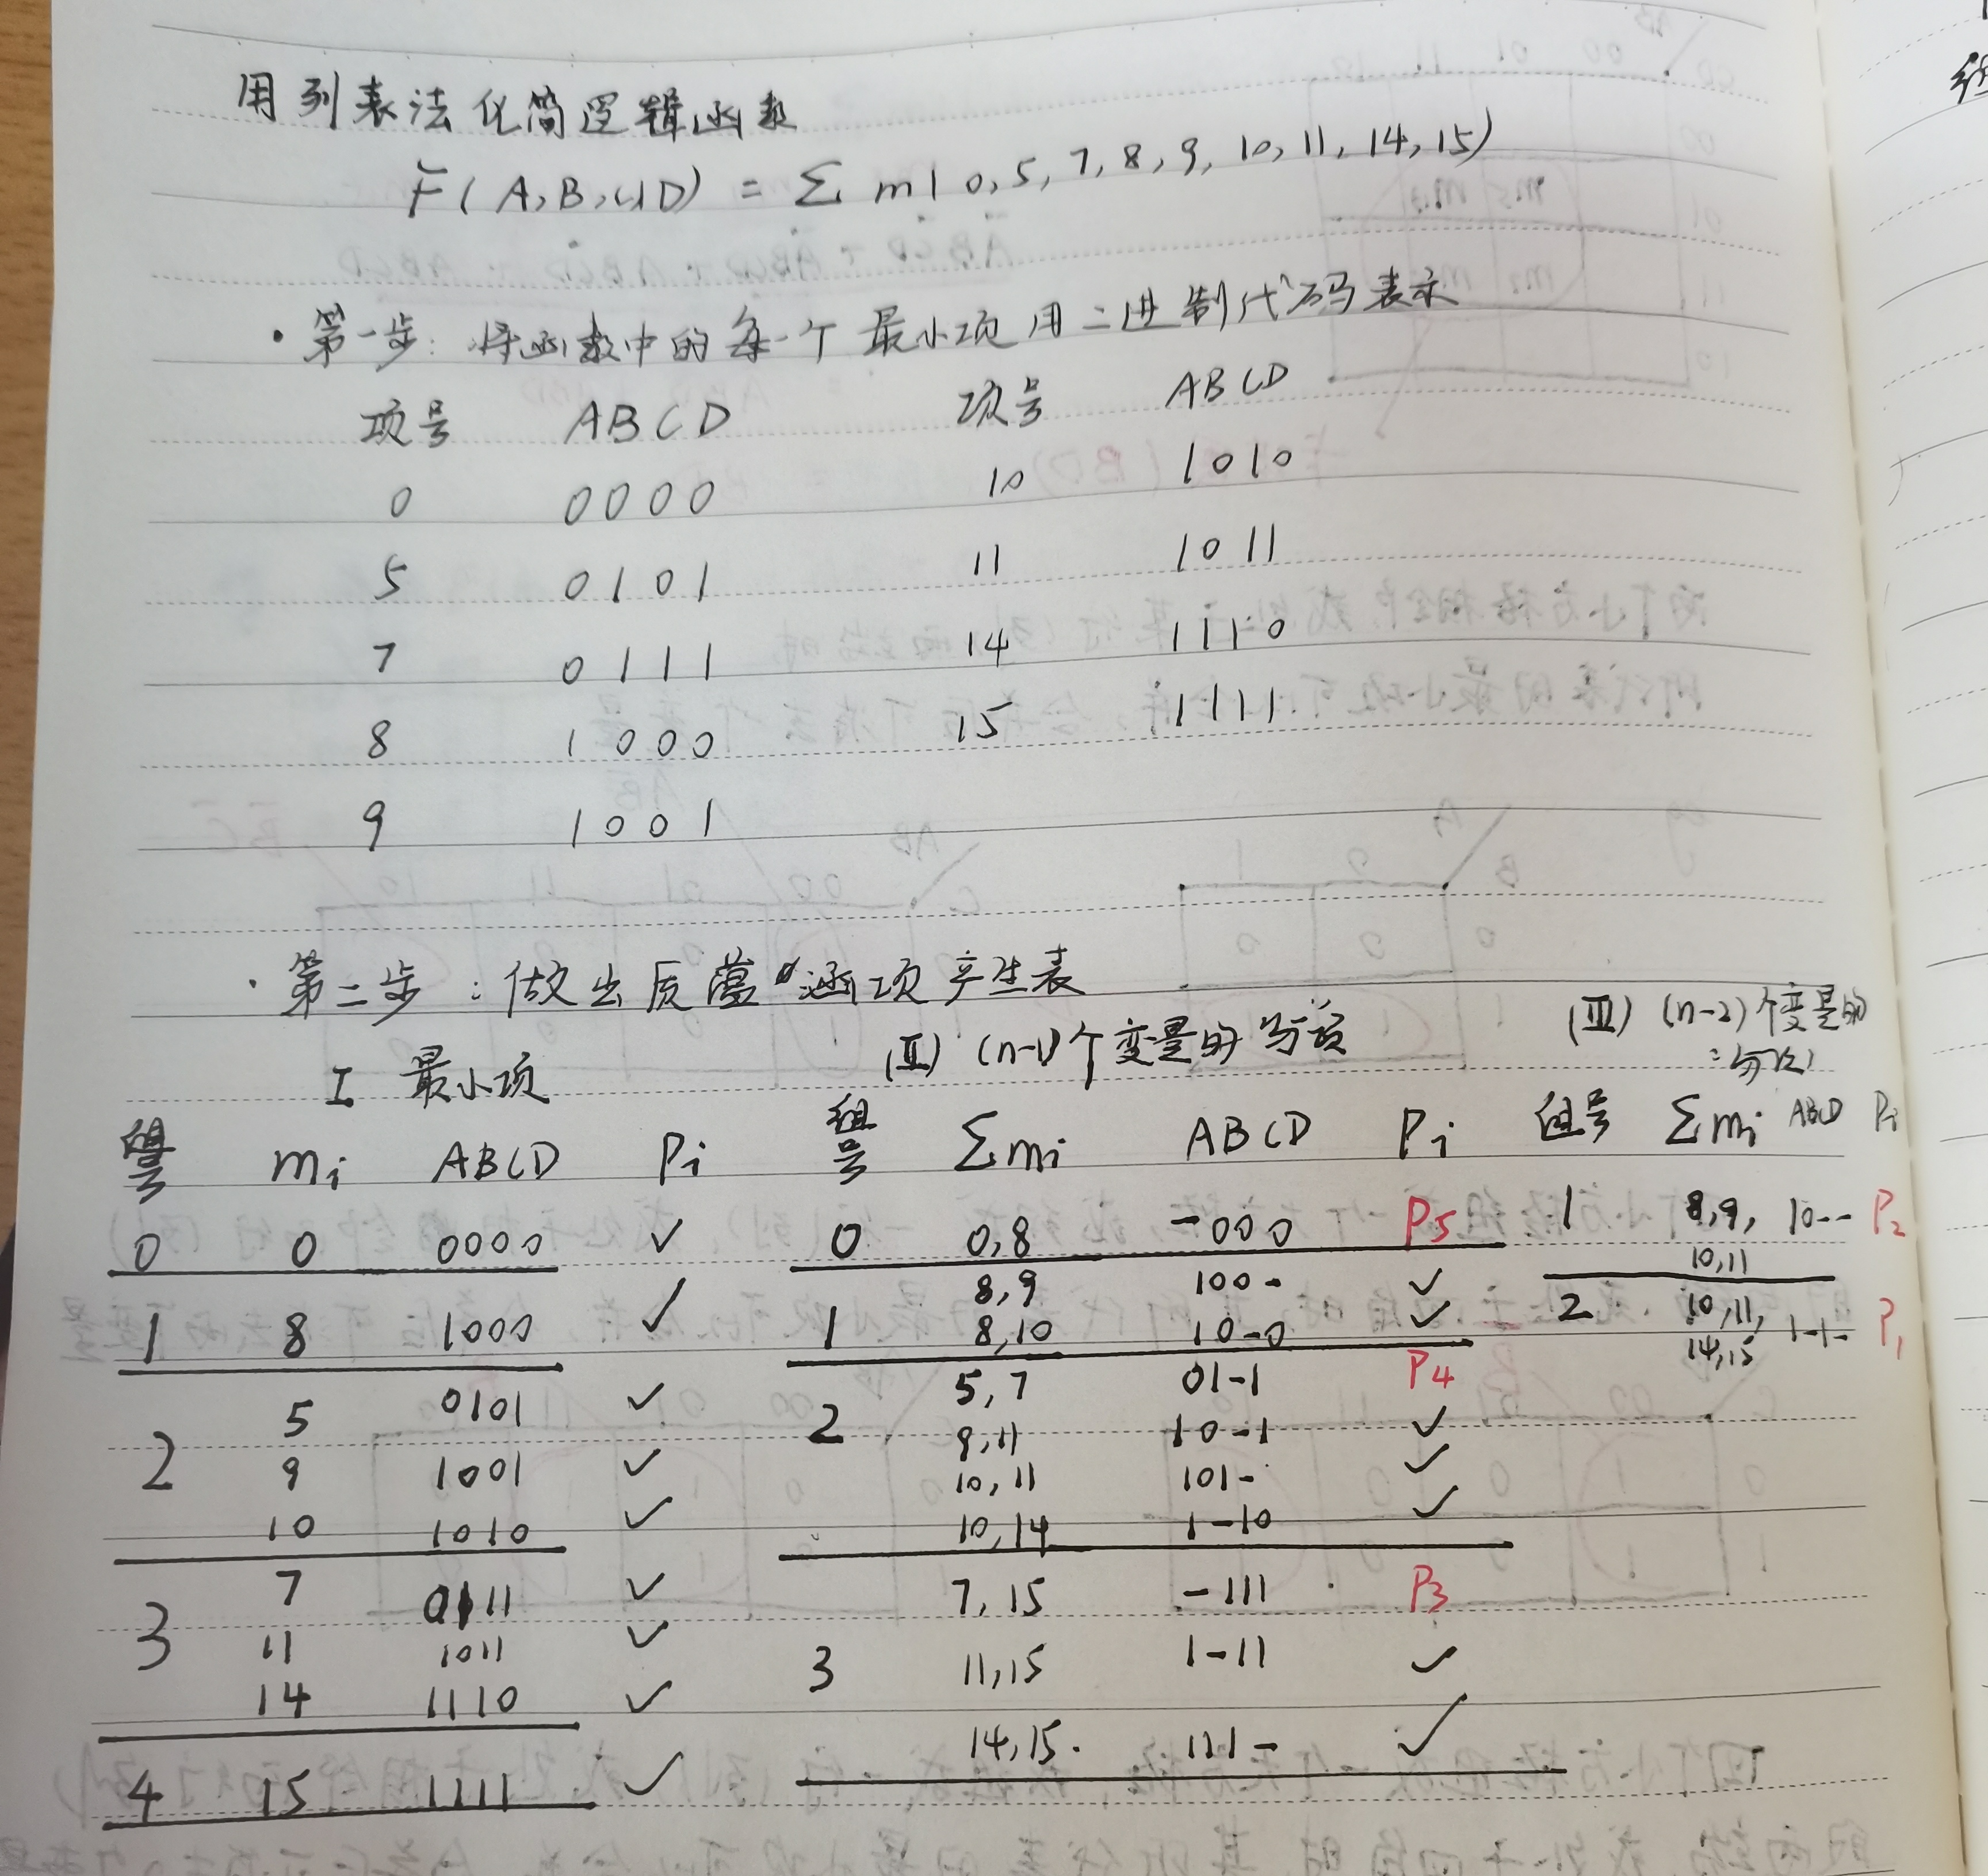 用列表法化简逻辑函数
F(A,B,C,D) = Σm(0,5,7,8,9,10,11,14,15)
·第一步:将函数中的每一个最小项用二进制代码表示
项号 ABCD 项号 ABCD
0 0000 10 1010
5 0101 11 1011
7 0111 14 1110
8 1000 15 1111
9 1001
·第二步:做出质蕴涵项产生表
I 最小项 (II) (n-1)个变量的与项 (III) (n-2)个变量的与项
组号 mi ABCD Pi 组号 Σmi ABCD Pi 组号 Σmi ABCD Pi
0 0 0000 ✓ 0 0,8 -000 P5 1 8,9,10,11 10-- P2
1 8 1000 ✓ 1 8,9 100- ✓ 2 10,11,14,15 1-1- P1
8,10 10-0 ✓
2 5 0101 ✓ 2 5,7 01-1 P4
9 1001 ✓ 9,11 10-1 ✓
10 1010 ✓ 10,11 101- ✓
10,14 1-10 ✓
3 7 0111 ✓ 3 7,15 -111 P3
11 1011 ✓ 11,15 1-11 ✓
14 1110 ✓ 14,15. 111- ✓
4 15 1111 ✓